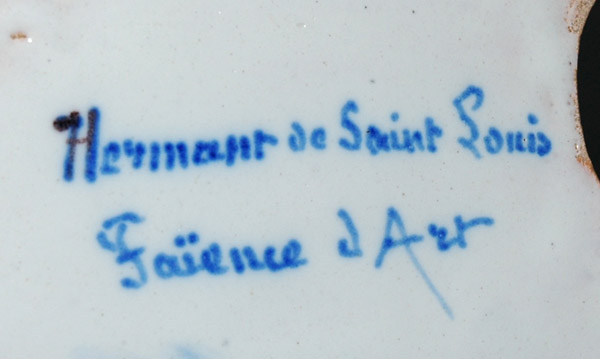 Hermant de Saint Louis
Faïence d'Art